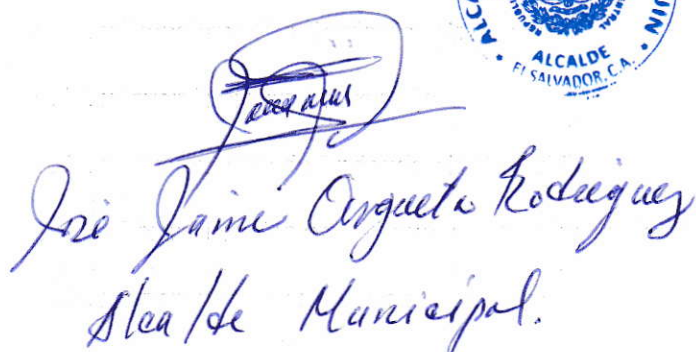 ALCALDE
EL SALVADOR, C.A.
José Jaime Argueta Rodriguez
Alcalde Municipal.